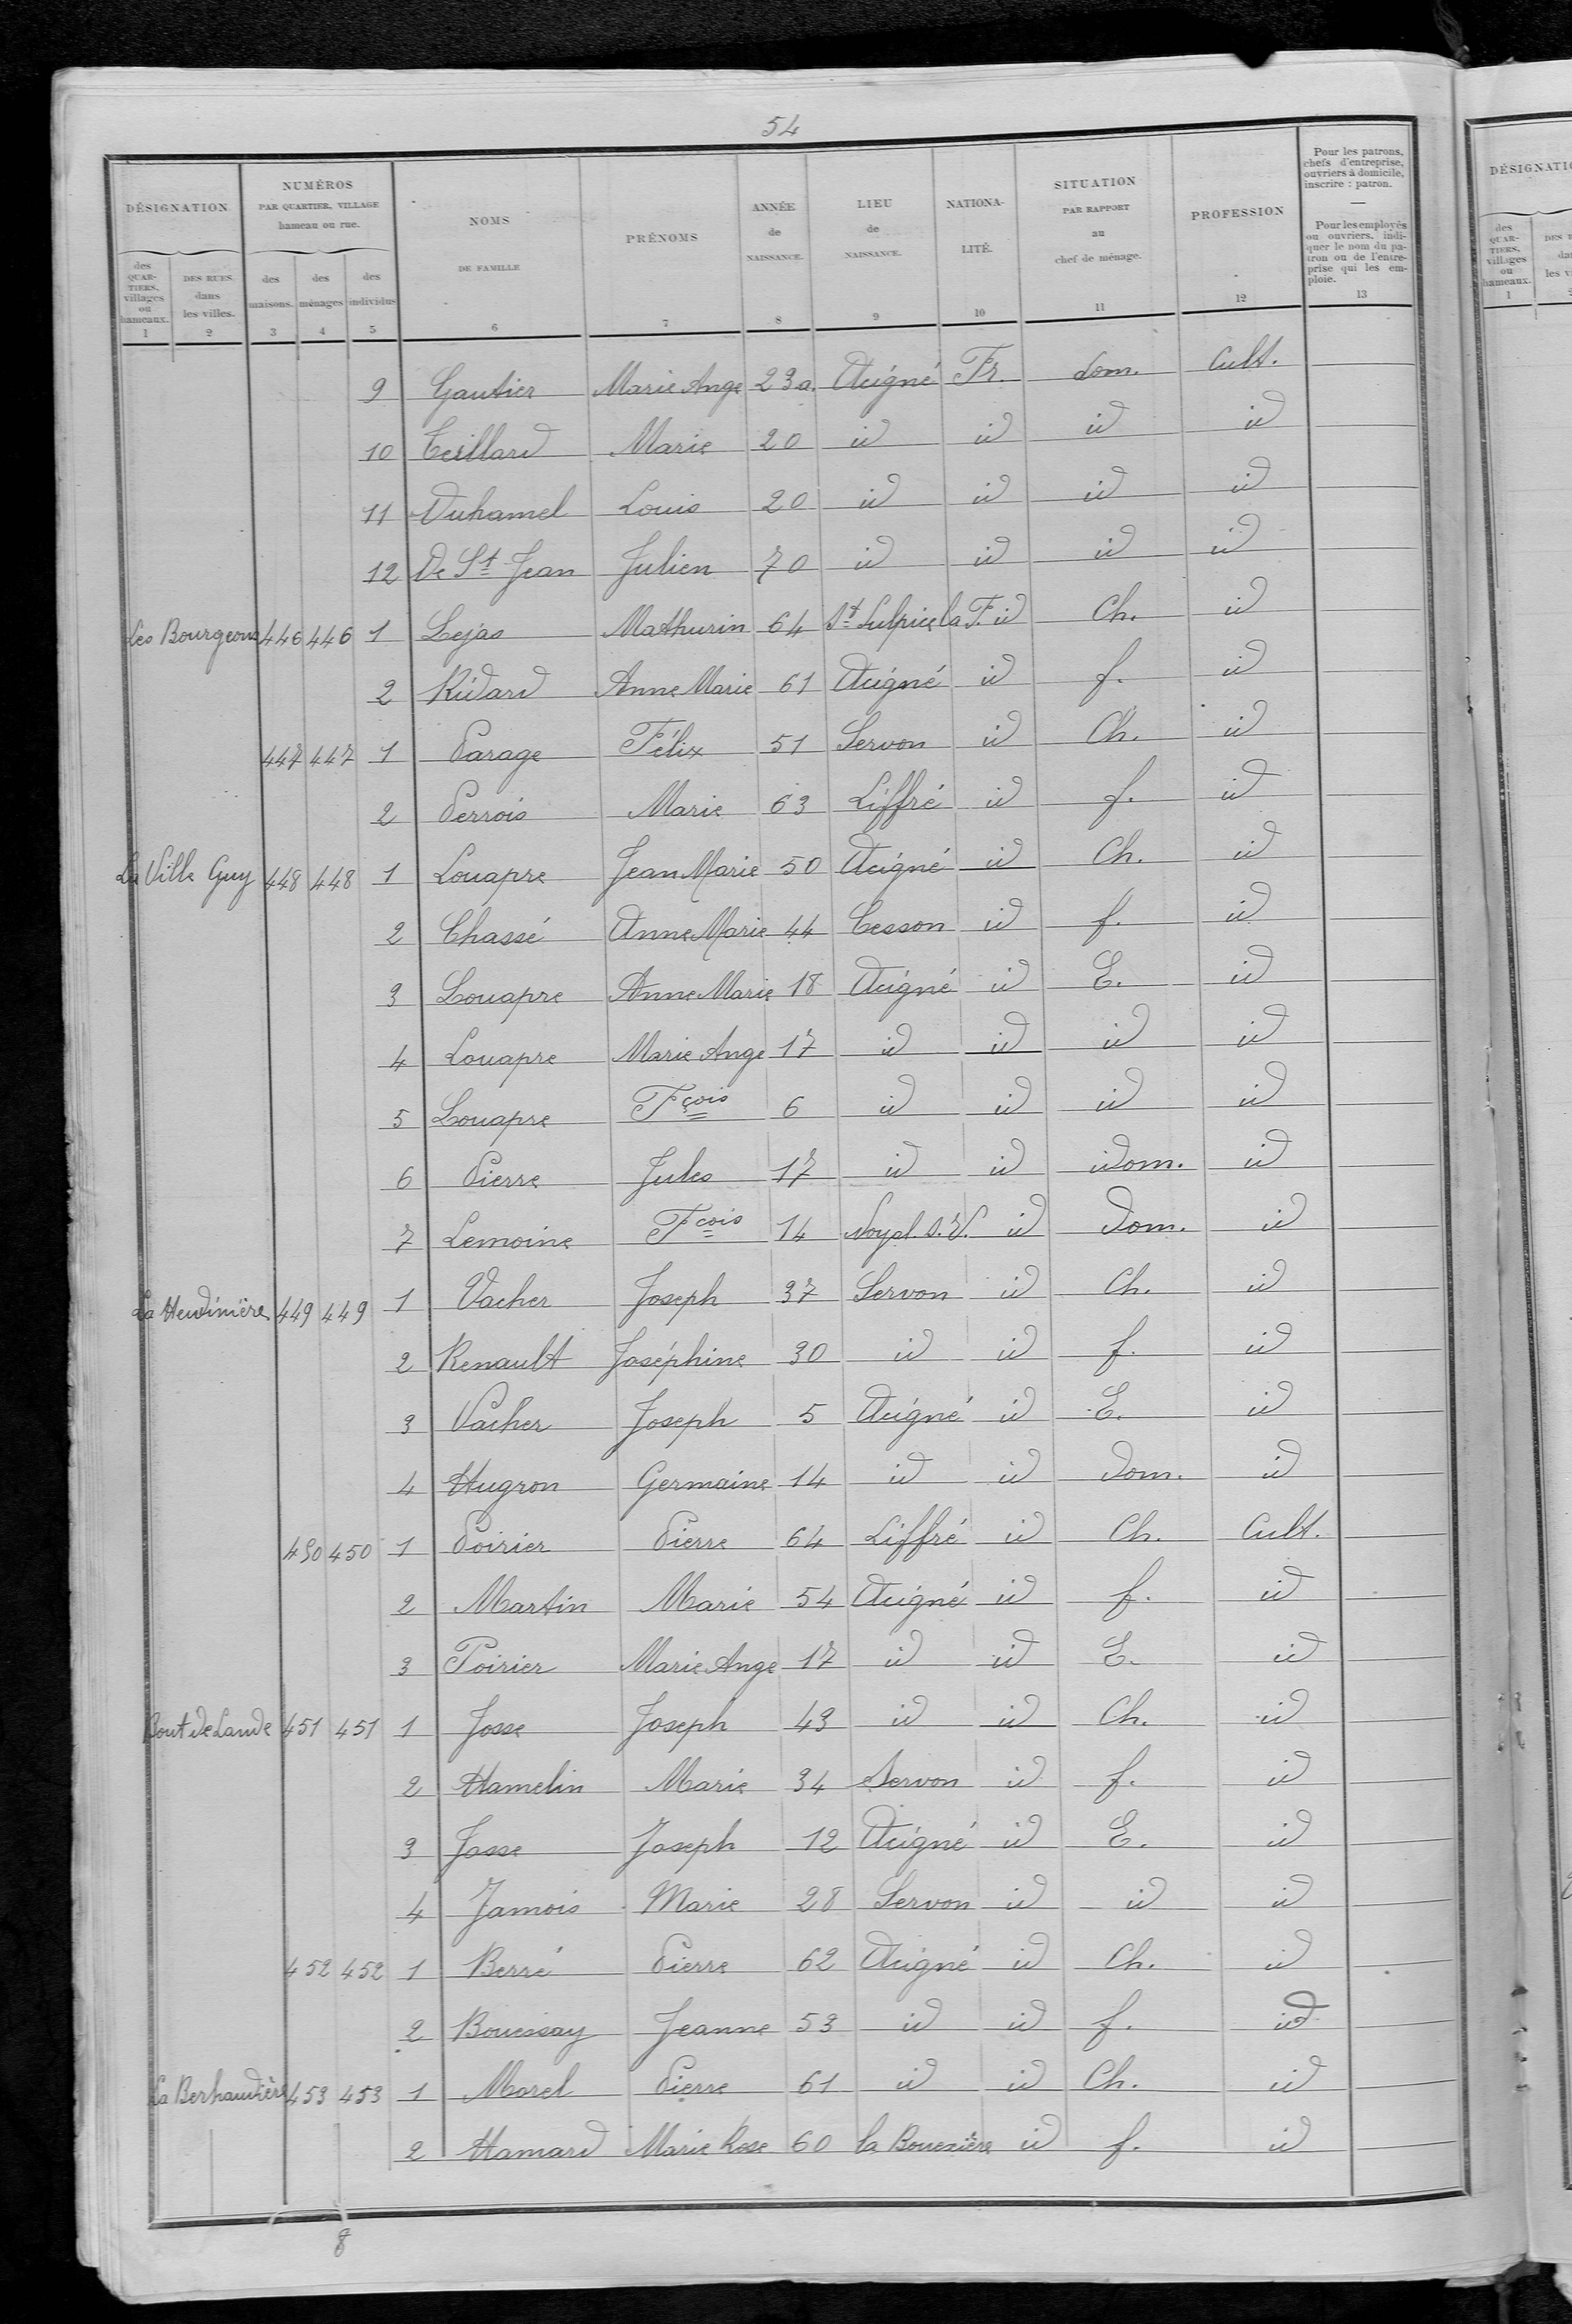 54
DÉSIGNATION
NUMÉROS
PAR QUARTIER, VILLAGE
hameau ou rue.
NOMS
DE FAMILLE
PRÉNOMS
ANNÉE
de
NAISSANCE.
LIEU
de
NAISSANCE.
NATIONA-
LITÉ.
SITUATION
PAR RAPPORT
au
chef de ménage.
PROFESSION
Pour les patrons,
chefs d'entreprise,
ouvriers à domicile,
inscrire : patron.
—
Pour les employés
ou ouvriers, indi-
quer le nom du pa-
tron ou de l'entre-
prise qui les em-
ploie.
des
QUAR-
TIERS,
villages
ou
hameaux.
DES RUES
dans
les villes.
des
maisons.
des
ménages
des
individus
1 2 3 4 5 6 7 8 9 10 11 12 13
9 Gautier Marie Ange 23 a. Acigné Fr. dom. Cult.
10 Teillard Marie 20 id id id id
11 Duhamel Louis 20 id id id id
12 De St Jean Julien 70 id id id id
Les Bourgeons 446 446 1 Lejas Mathurin 64 St Sulpice la F. id Ch. id
2 Ridard Anne Marie 61 Acigné id f. id
447 447 1 Parage Félix 51 Servon id Ch. id
2 Perrois Marie 63 Liffré id f. id
La Ville Guy 448 448 1 Louapre Jean Marie 50 Acigné id Ch. id
2 Chassé Anne Marie 44 Cesson id f. id
3 Louapre Anne Marie 18 Acigné id E. id
4 Louapre Marie Ange 17 id id id id
5 Louapre Fçois 6 id id id id
6 Pierre Jules 17 id id dom. id
7 Lemoine Fçois 14 Noyal s. V. id dom. id
La Heudinière 449 449 1 Vacher Joseph 37 Servon id Ch. id
2 Renault Joséphine 30 id id f. id
3 Vacher Joseph 5 Acigné id E. id
4 Hugron Germaine 14 id id dom. id
450 450 1 Poirier Pierre 64 Liffré id Ch. Cult.
2 Martin Marie 54 Acigné id f. id
3 Poirier Marie Ange 17 id id E. id
Bout de Lande 451 451 1 Josse Joseph 43 id id Ch. id
2 Hamelin Marie 34 Servon id f. id
3 Josse Joseph 12 Acigné id E. id
4 Jamois Marie 28 Servon id id id
452 452 1 Berré Pierre 62 Acigné id Ch. id
2 Bouessay Jeanne 53 id id f. id
La Berhaudière 453 453 1 Morel Pierre 61 id id Ch. id
2 Hamard Marie Rose 60 la Bouexière id f. id
8
DÉSIGNATIO
des
QUAR-
TIERS,
villages
ou
hameaux.
1